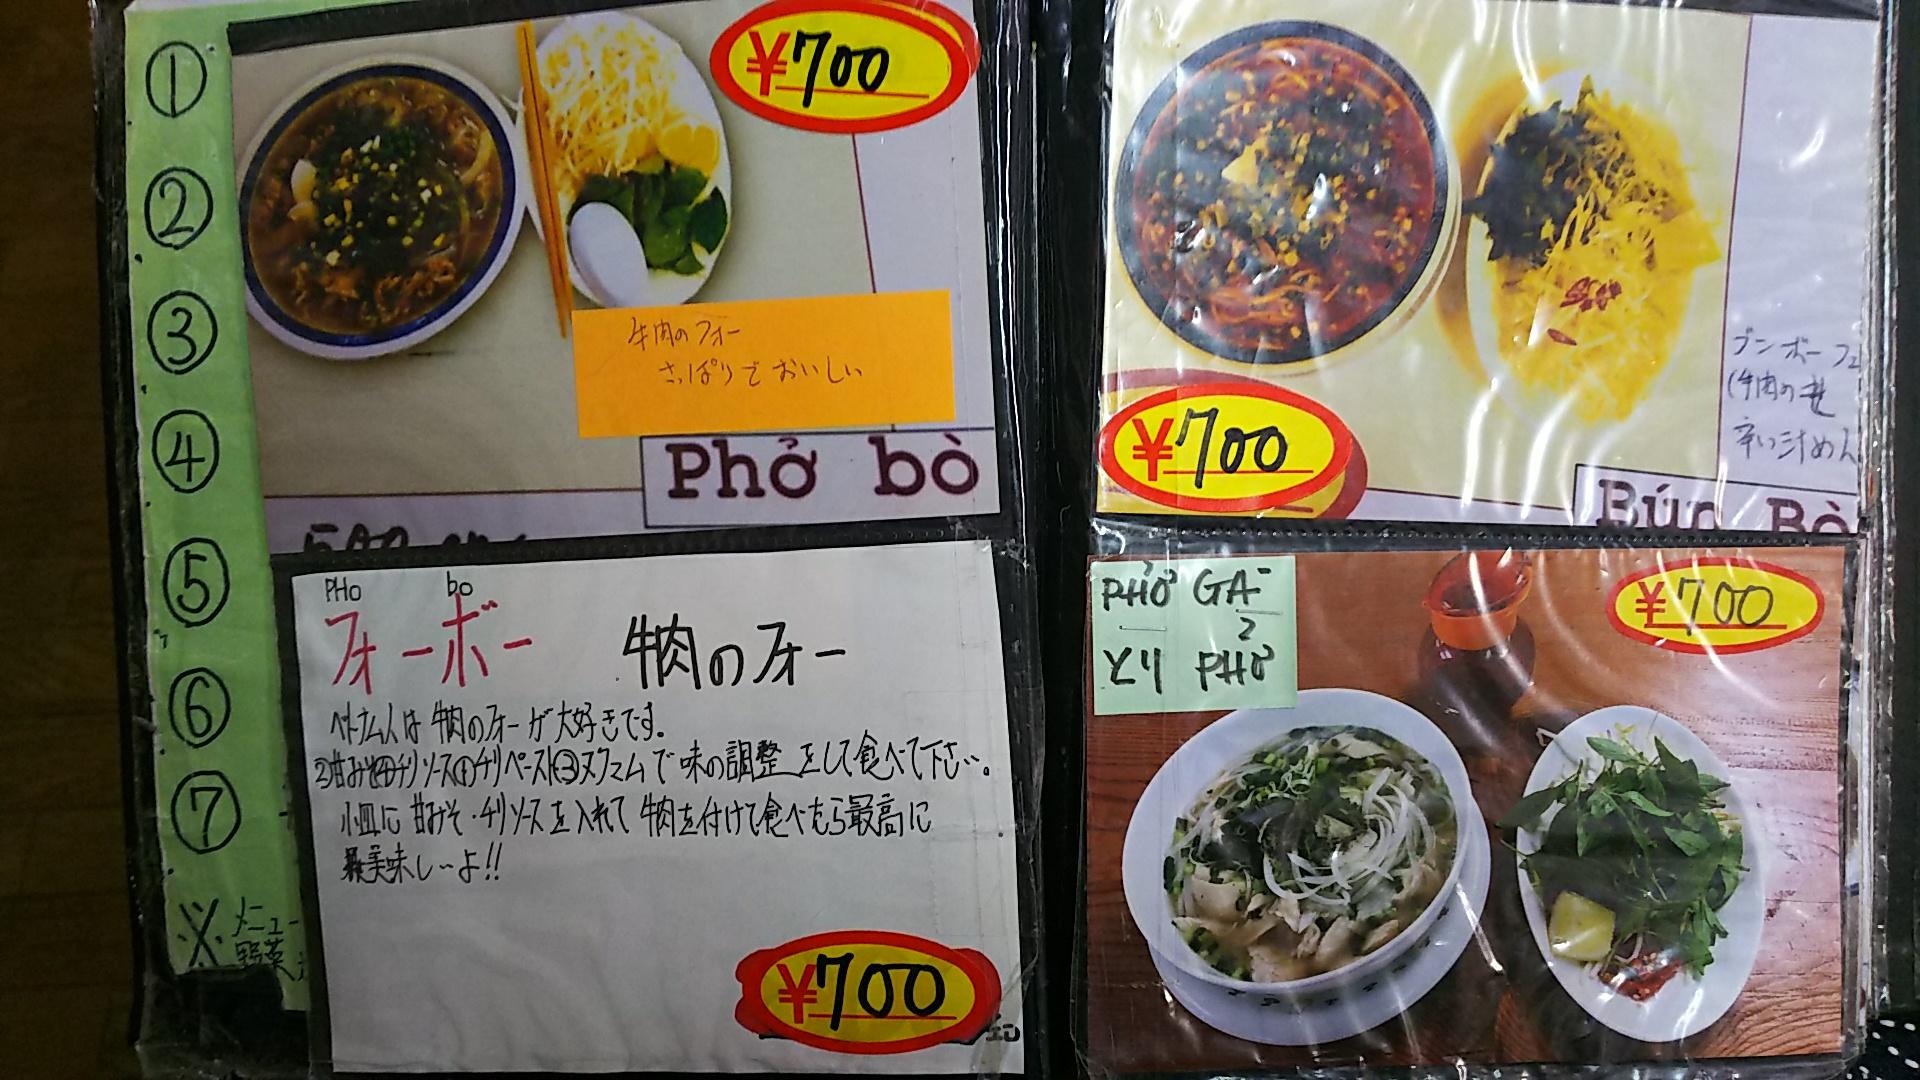 ①
②
③
④
⑤
⑥
⑦
※ メニュー
野菜
¥700
牛肉のフォー
さっぱりでおいしい
Phở bò
PHO bo
フォーボー 牛肉のフォー
ベトナム人は牛肉のフォーが大好きです。
②甘みそ④チリソース①チリペースト③ヌクマムで味の調整をして食べて下さい。
小皿に甘みそ・チリソースを入れて牛肉を付けて食べたら最高に
美味しーよ!!
¥700
¥700
ブンボーフェ
(牛肉の
辛い汁めん
Bún Bò
PHỞ GÀ
とり PHỞ
¥700